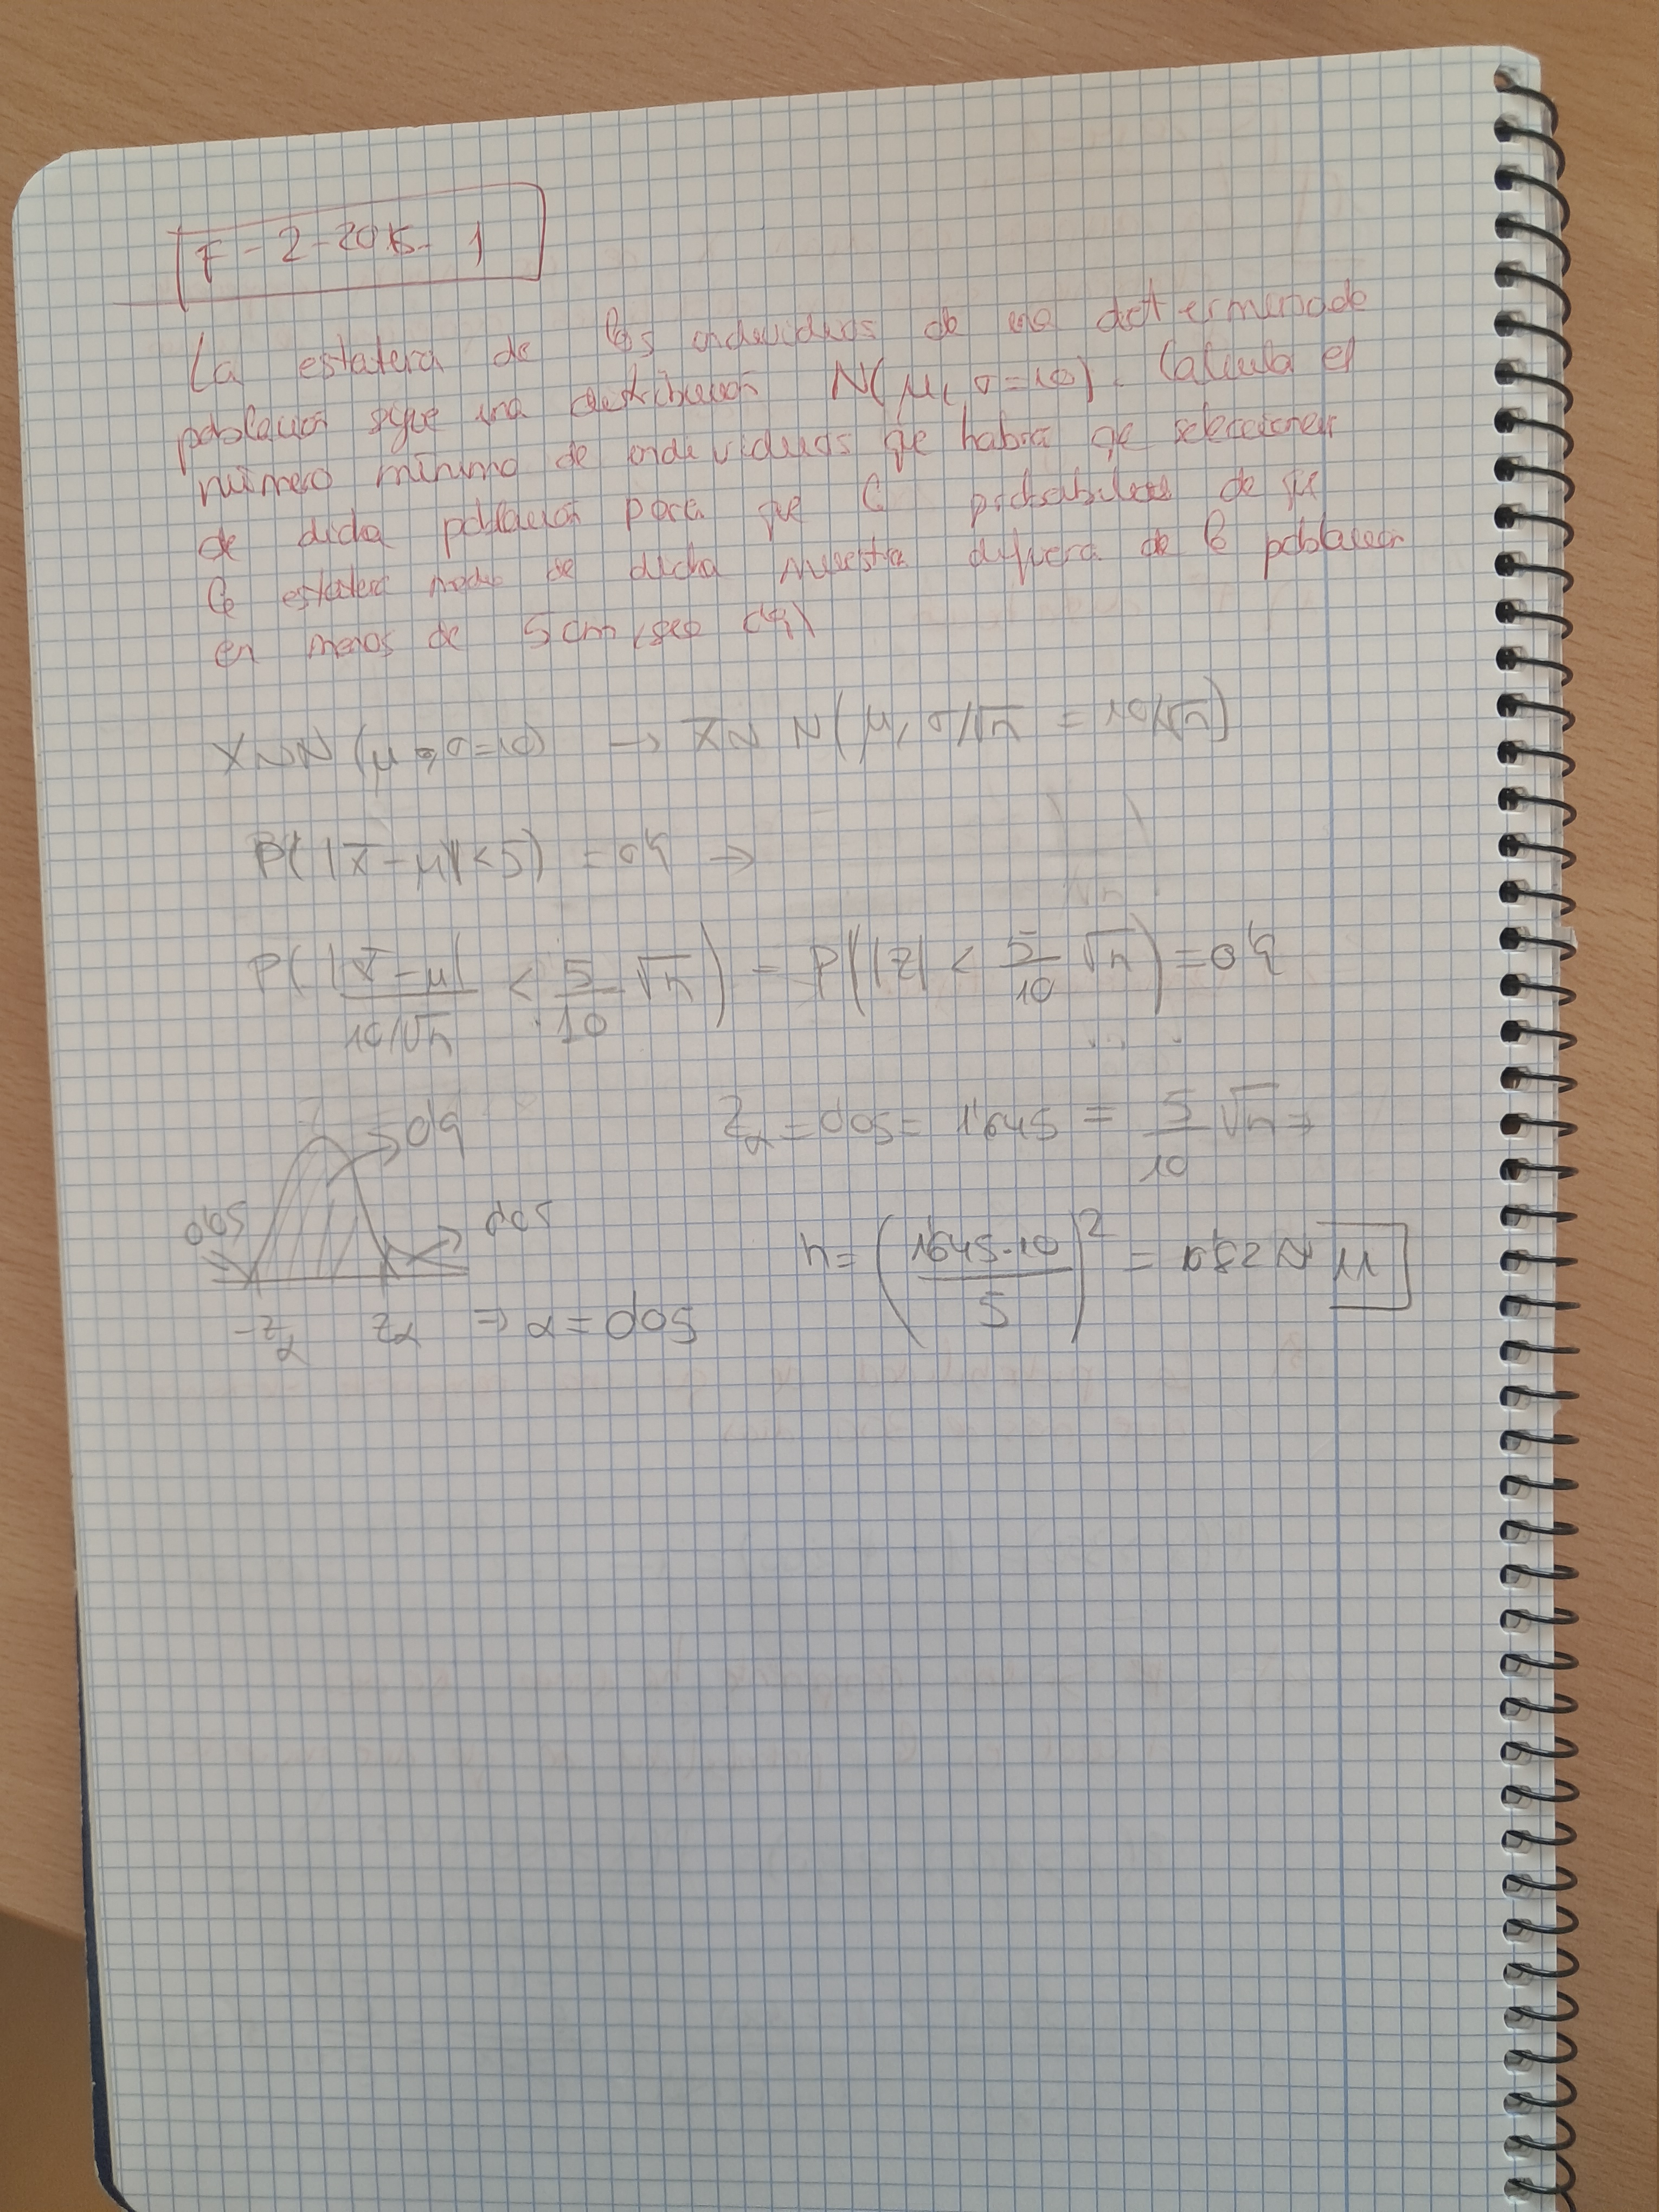 F-2-2015-1
La estatura de los individuos de una determinada
población sigue una distribución N(μ, σ=10). Calcula el
número mínimo de individuos que habrá qe seleccionar
de dicha población para que la probabilidad de que
la estatura media de dicha muestra difiera de la población
en menos de 5cm sea 0'9
X~N(μ, σ=10) → X̄~N(μ, σ/√n = 10/√n)
P(|X̄-μ|<5) = 0'9 →
P(|X̄-μ|/(10/√n) < 5/10 √n) = P(|Z| < 5/10 √n) = 0'9
0'9
Zα = 0'05 = 1'645 = 5/10 √n ⇒
0'05 0'05
n = (1'645·10/5)² = 10'82 ~ 11
-Zα Zα ⇒ α = 0'05